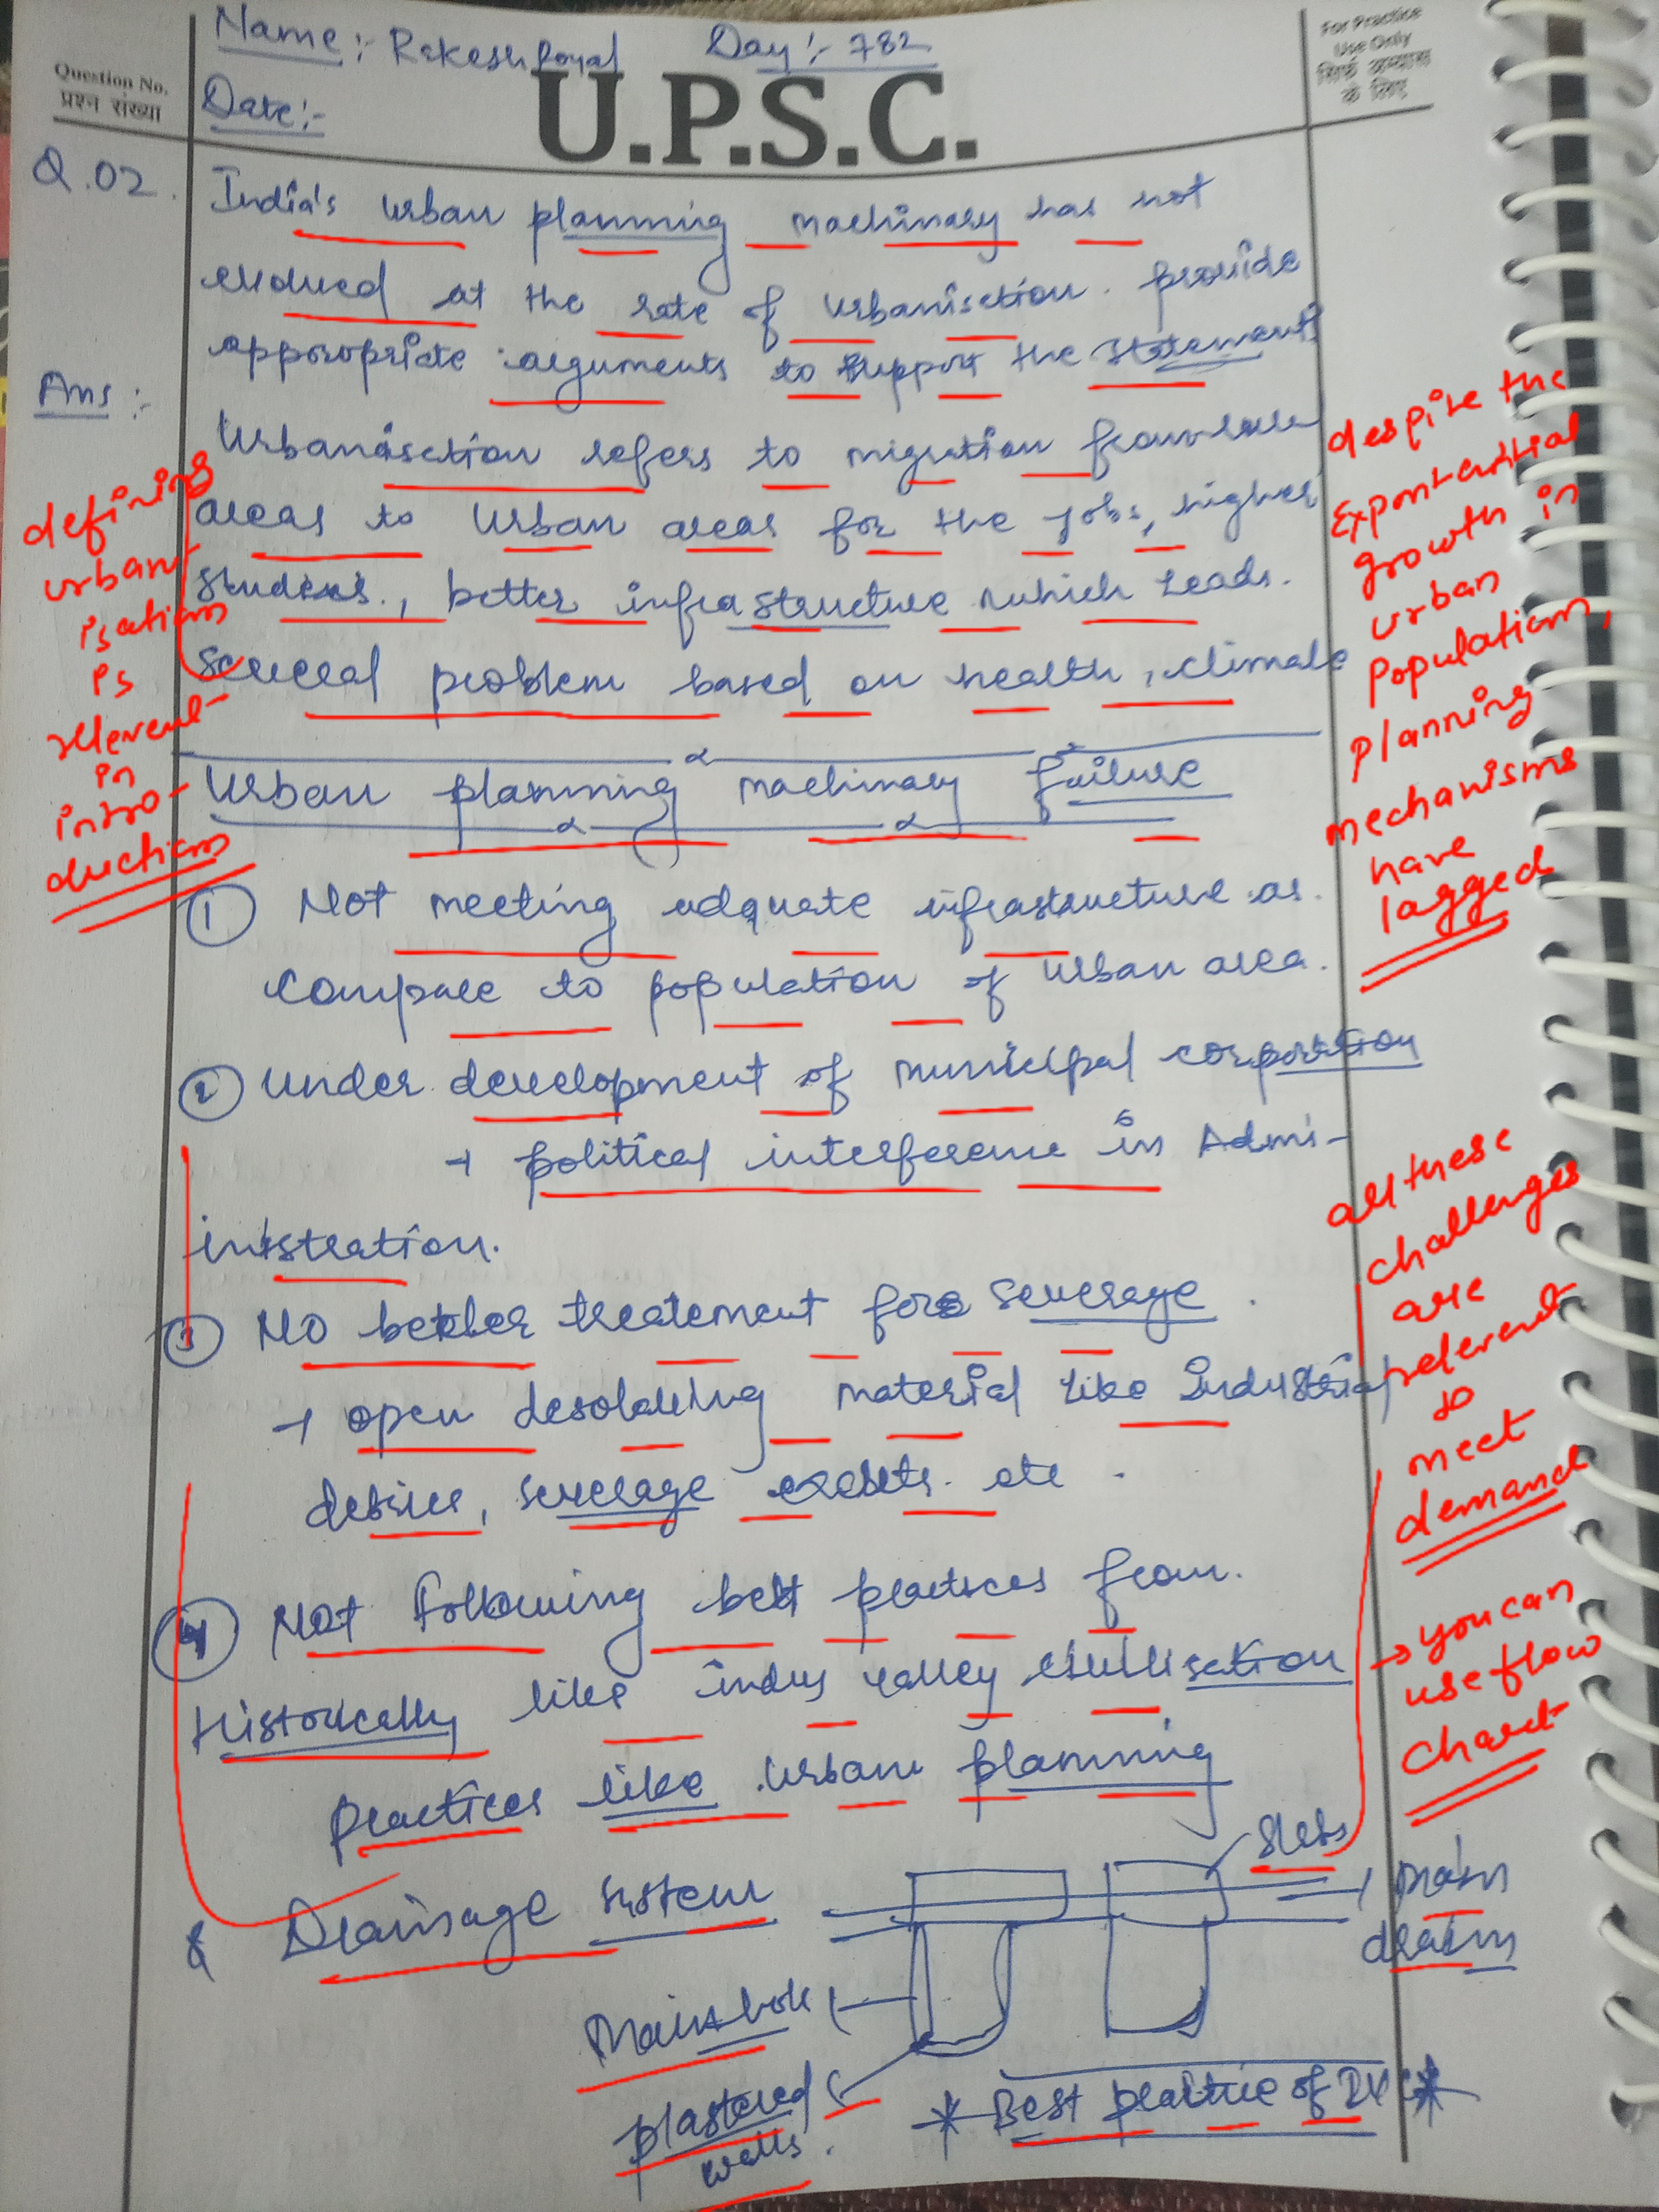 Name:- Rakesh Royal Day:- 782
For Practice
Use Only
सिर्फ अभ्यास
के लिए
Question No.
प्रश्न संख्या
Date:-
U.P.S.C.
Q.02. India's urban planning machinary has not
evolved at the rate of urbanisation. provide
appropriate arguments to support the statement
Ans:- Urbanisation refers to migration from
areas to urban areas for the jobs, higher
studies, better infrastructure which leads.
several problem based on health, climate
defining
urban
isation
is
relevent
in
intro-
duction
despite the
exponential
growth in
urban
population,
planning
mechanisms
have
lagged
Urban planning machinary failure
1 Not meeting adquate infrastructure as.
compare to population of urban area.
2 under development of municipal corporation
→ political interference in Admi-
inistration.
3 No better treatement for severage.
→ open material like industrial
severage etc.
all these
challenges
are
relevent
to
meet
demand
4 Not following best practices from.
Historically like indus valley civilisation
practices like urban planning
→ you can
use flow
chart
& Drainage system
Slabs
main
drain
Main hole
plastered
walls.
* Best practice of IVC *